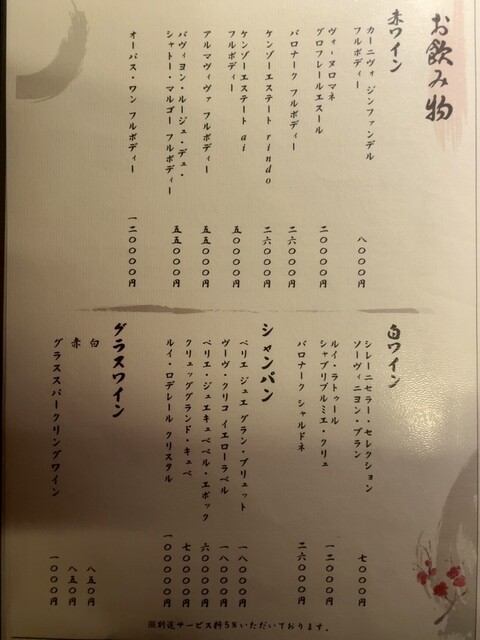 お飲み物
赤ワイン
カーニヴォ ジンファンデル
フルボディー
八〇〇〇円
ヴォーヌロマネ
グロフレールエスール
二〇〇〇〇円
バロナーク フルボディー
二六〇〇〇円
ケンゾーエステート rindo
二六〇〇〇円
ケンゾーエステート ai
フルボディー
五〇〇〇〇円
アルマヴィヴァ フルボディー
五五〇〇〇円
パヴィヨン・ルージュ・デュ・
シャトー・マルゴー フルボディー
五五〇〇〇円
オーパス・ワン フルボディー
一二〇〇〇〇円
白ワイン
シレーニセラー・セレクション
ソーヴィニヨン・ブラン
七〇〇〇円
ルイ・ラトゥール
シャブリプルミエ・クリュ
一二〇〇〇円
バロナーク シャルドネ
二六〇〇〇円
シャンパン
ベリエ ジュエ グラン・ブリュット
一八〇〇〇円
ヴーヴ・クリコ イエローラベル
一八〇〇〇円
ベリエ・ジュエキュベベル・エポック
六〇〇〇〇円
クリュッググランド・キュベ
七〇〇〇〇円
ルイ・ロデレール クリスタル
一〇〇〇〇〇円
グラスワイン
白
八五〇円
赤
八五〇円
グラススパークリングワイン
一〇〇〇円
※別途サービス料5%いただいております。